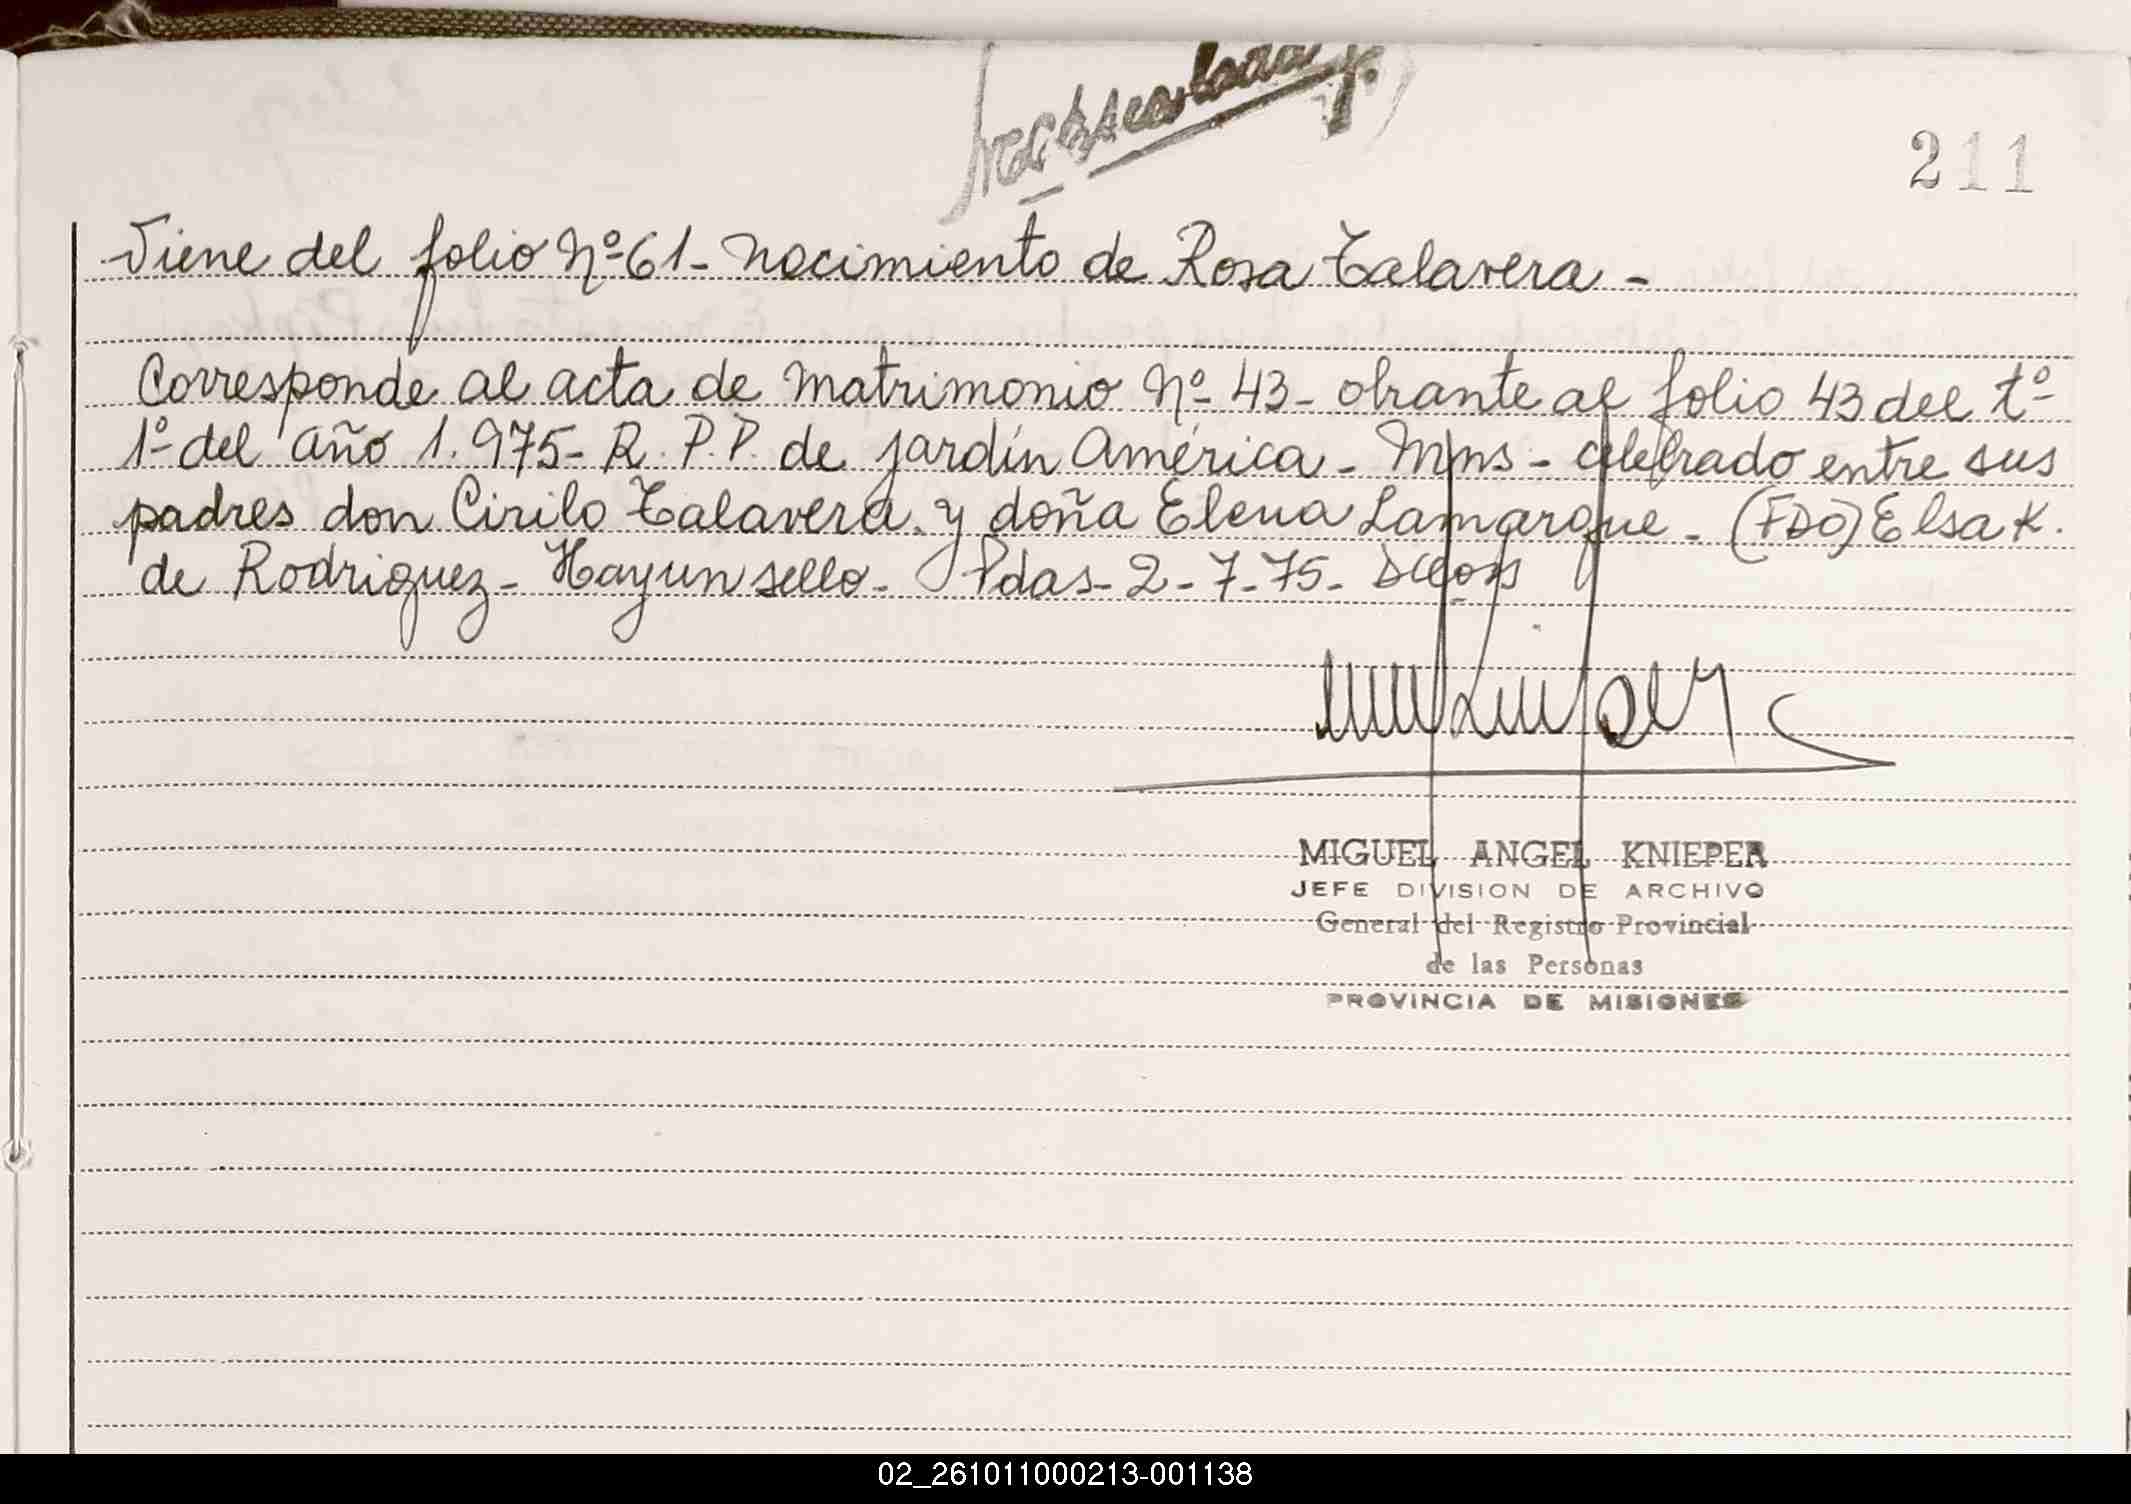 211
Viene del folio Nº 61- Nacimiento de Rosa Talavera -
Corresponde al acta de Matrimonio Nº 43- obrante al folio 43 del tº
1º del año 1.975- R. P.P. de Jardín América - Mnes - celebrado entre sus
padres don Cirilo Talavera y doña Elena Lamarque - (FDO) Elsa K.
de Rodriguez - Hay un sello - Pdas - 2 - 7 - 75 -
MIGUEL ANGEL KNIEPER
JEFE DIVISION DE ARCHIVO
General del Registro Provincial
de las Personas
PROVINCIA DE MISIONES
02_261011000213-001138